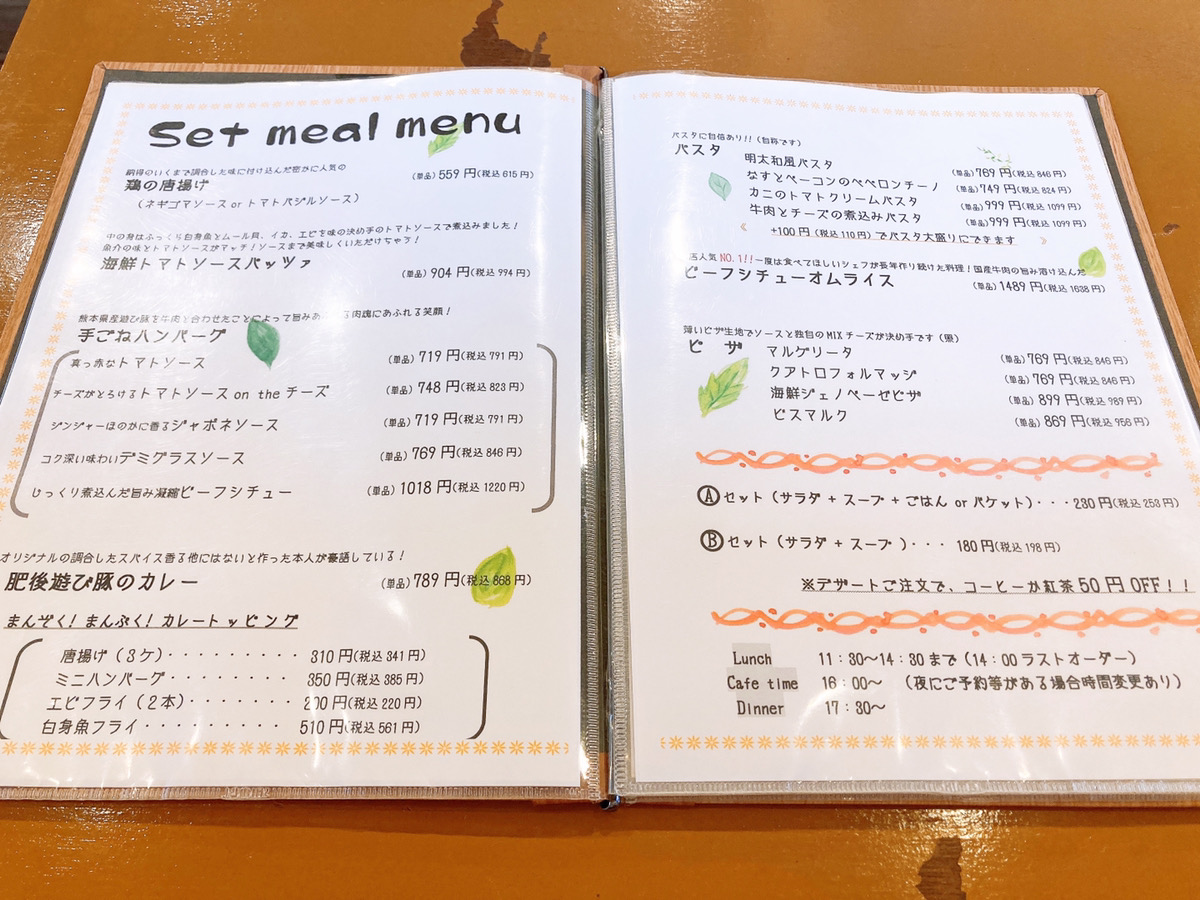 Set meal menu
納得のいくまで調合した味に付け込んだ密かに人気の
鶏の唐揚げ
(単品)559円(税込615円)
(ネギゴマソース or トマトバジルソース)
中の身はふっくら白身魚とムール貝、イカ、エビを味の決め手のトマトソースで煮込みました!
魚介の味とトマトソースがマッチ!ソースまで美味しくいただけちゃう!
海鮮トマトソースパッツァ
(単品)904円(税込994円)
熊本県産遊び豚を牛肉と合わせたことによって旨みあふれる肉塊にあふれる笑顔!
手ごねハンバーグ
真っ赤なトマトソース (単品)719円(税込791円)
チーズがとろけるトマトソース on the チーズ (単品)748円(税込823円)
ジンジャーほのかに香るジャポネソース (単品)719円(税込791円)
コク深い味わいデミグラスソース (単品)769円(税込846円)
じっくり煮込んだ旨み凝縮ビーフシチュー (単品)1018円(税込1220円)
オリジナルの調合したスパイス香る他にはないと作った本人が豪語している!
肥後遊び豚のカレー (単品)789円(税込868円)
まんぞく!まんぷく!カレートッピング
唐揚げ(3ケ)・・・・・・・・310円(税込341円)
ミニハンバーグ・・・・・・・・350円(税込385円)
エビフライ(2本)・・・・・・・200円(税込220円)
白身魚フライ・・・・・・・・・510円(税込561円)
パスタに自信あり!!(自称です)
パスタ
明太和風パスタ (単品)769円(税込846円)
なすとベーコンのペペロンチーノ (単品)749円(税込824円)
カニのトマトクリームパスタ (単品)999円(税込1099円)
牛肉とチーズの煮込みパスタ (単品)999円(税込1099円)
《 +100円(税込110円)でパスタ大盛りにできます 》
店人気NO.1!!一度は食べてほしいシェフが長年作り続けた料理!国産牛肉の旨み溶け込んだ
ビーフシチューオムライス
(単品)1489円(税込1638円)
薄いピザ生地でソースと独自のMIXチーズが決め手です(照)
ピザ
マルゲリータ (単品)769円(税込846円)
クアトロフォルマッジ (単品)769円(税込846円)
海鮮ジェノベーゼピザ (単品)899円(税込989円)
ビスマルク (単品)869円(税込956円)
Ⓐセット(サラダ+スープ+ごはん or バケット)・・・230円(税込253円)
Ⓑセット(サラダ+スープ)・・・180円(税込198円)
※デザートご注文で、コーヒーか紅茶50円OFF!!
Lunch 11:30〜14:30まで(14:00ラストオーダー)
Cafe time 16:00〜 (夜にご予約等がある場合時間変更あり)
Dinner 17:30〜